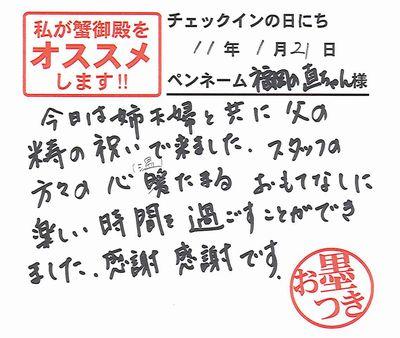 私が蟹御殿を
オススメ
します!!
チェックインの日にち
11年 1月21日
ペンネーム 福岡の直ちゃん様
今日は姉夫婦と共に父の
米寿の祝いで来ました。スタッフの
方々の心温たまるおもてなしに
楽しい時間を過ごすことができ
ました。感謝感謝です。
お墨つき